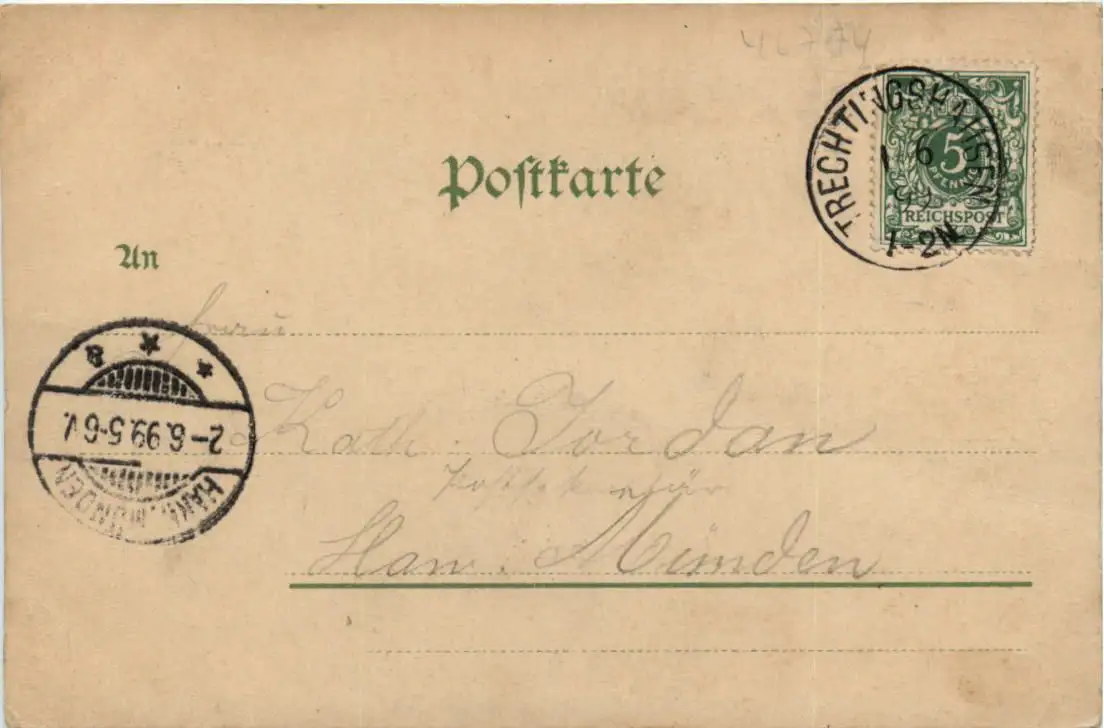 42784
TRECHTINGSHAUSEN
1 6
99
1-2N
5
PFENNIG
REICHSPOST
Postkarte
An
Frau
Kath. Jordan
Postsekretär
Han. Münden
HANN. MÜNDEN
2-6.99.5-6V.
* * * a